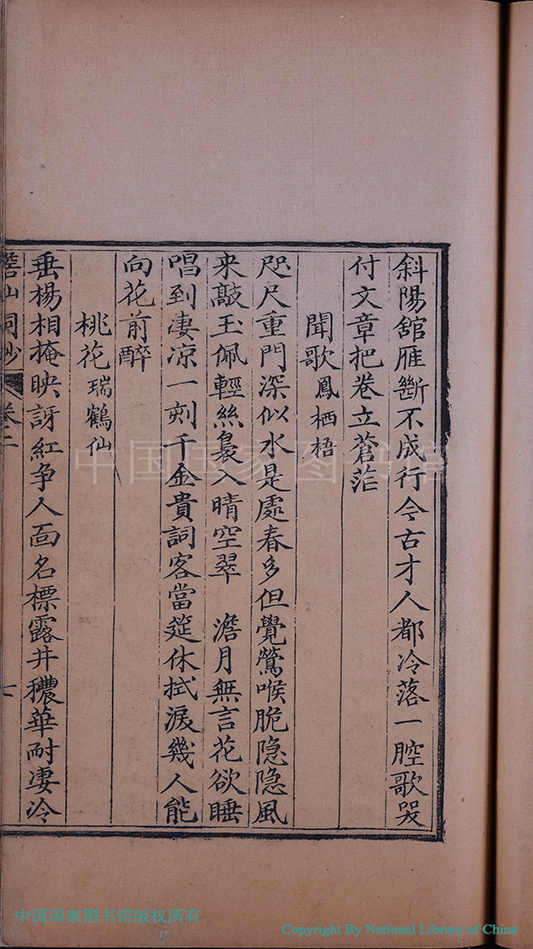 斜陽舘雁斷不成行今古才人都冷落一腔歌哭
付文章把卷立蒼茫
聞歌鳳栖梧
咫尺重門深似水是處春多但覺鶯喉脆隐隐風
来敲玉佩輕絲裊入晴空翠　澹月無言花欲睡
唱到凄凉一刻千金貴詞客當筵休拭淚幾人能
向花前醉
桃花瑞鶴仙
垂楊相掩映訝紅争人面名標露井穠華耐凄冷
山詞鈔　卷二
中国国家图书馆
中国国家图书馆版权所有
Copyright By National Library of China